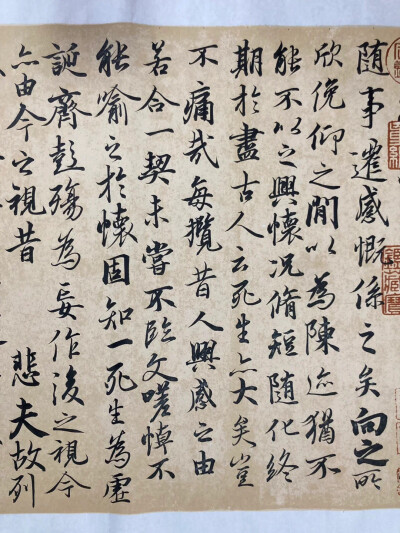 随事遷感慨係之矣向之所
欣俛仰之閒以為陳迹猶不
能不以之興懷况脩短随化終
期於盡古人云死生亦大矣豈
不痛哉每攬昔人興感之由
若合一契未嘗不臨文嗟悼不
能喻之於懷固知一死生為虛
誕齊彭殤為妄作後之視今
亦由今之視昔 悲夫故列